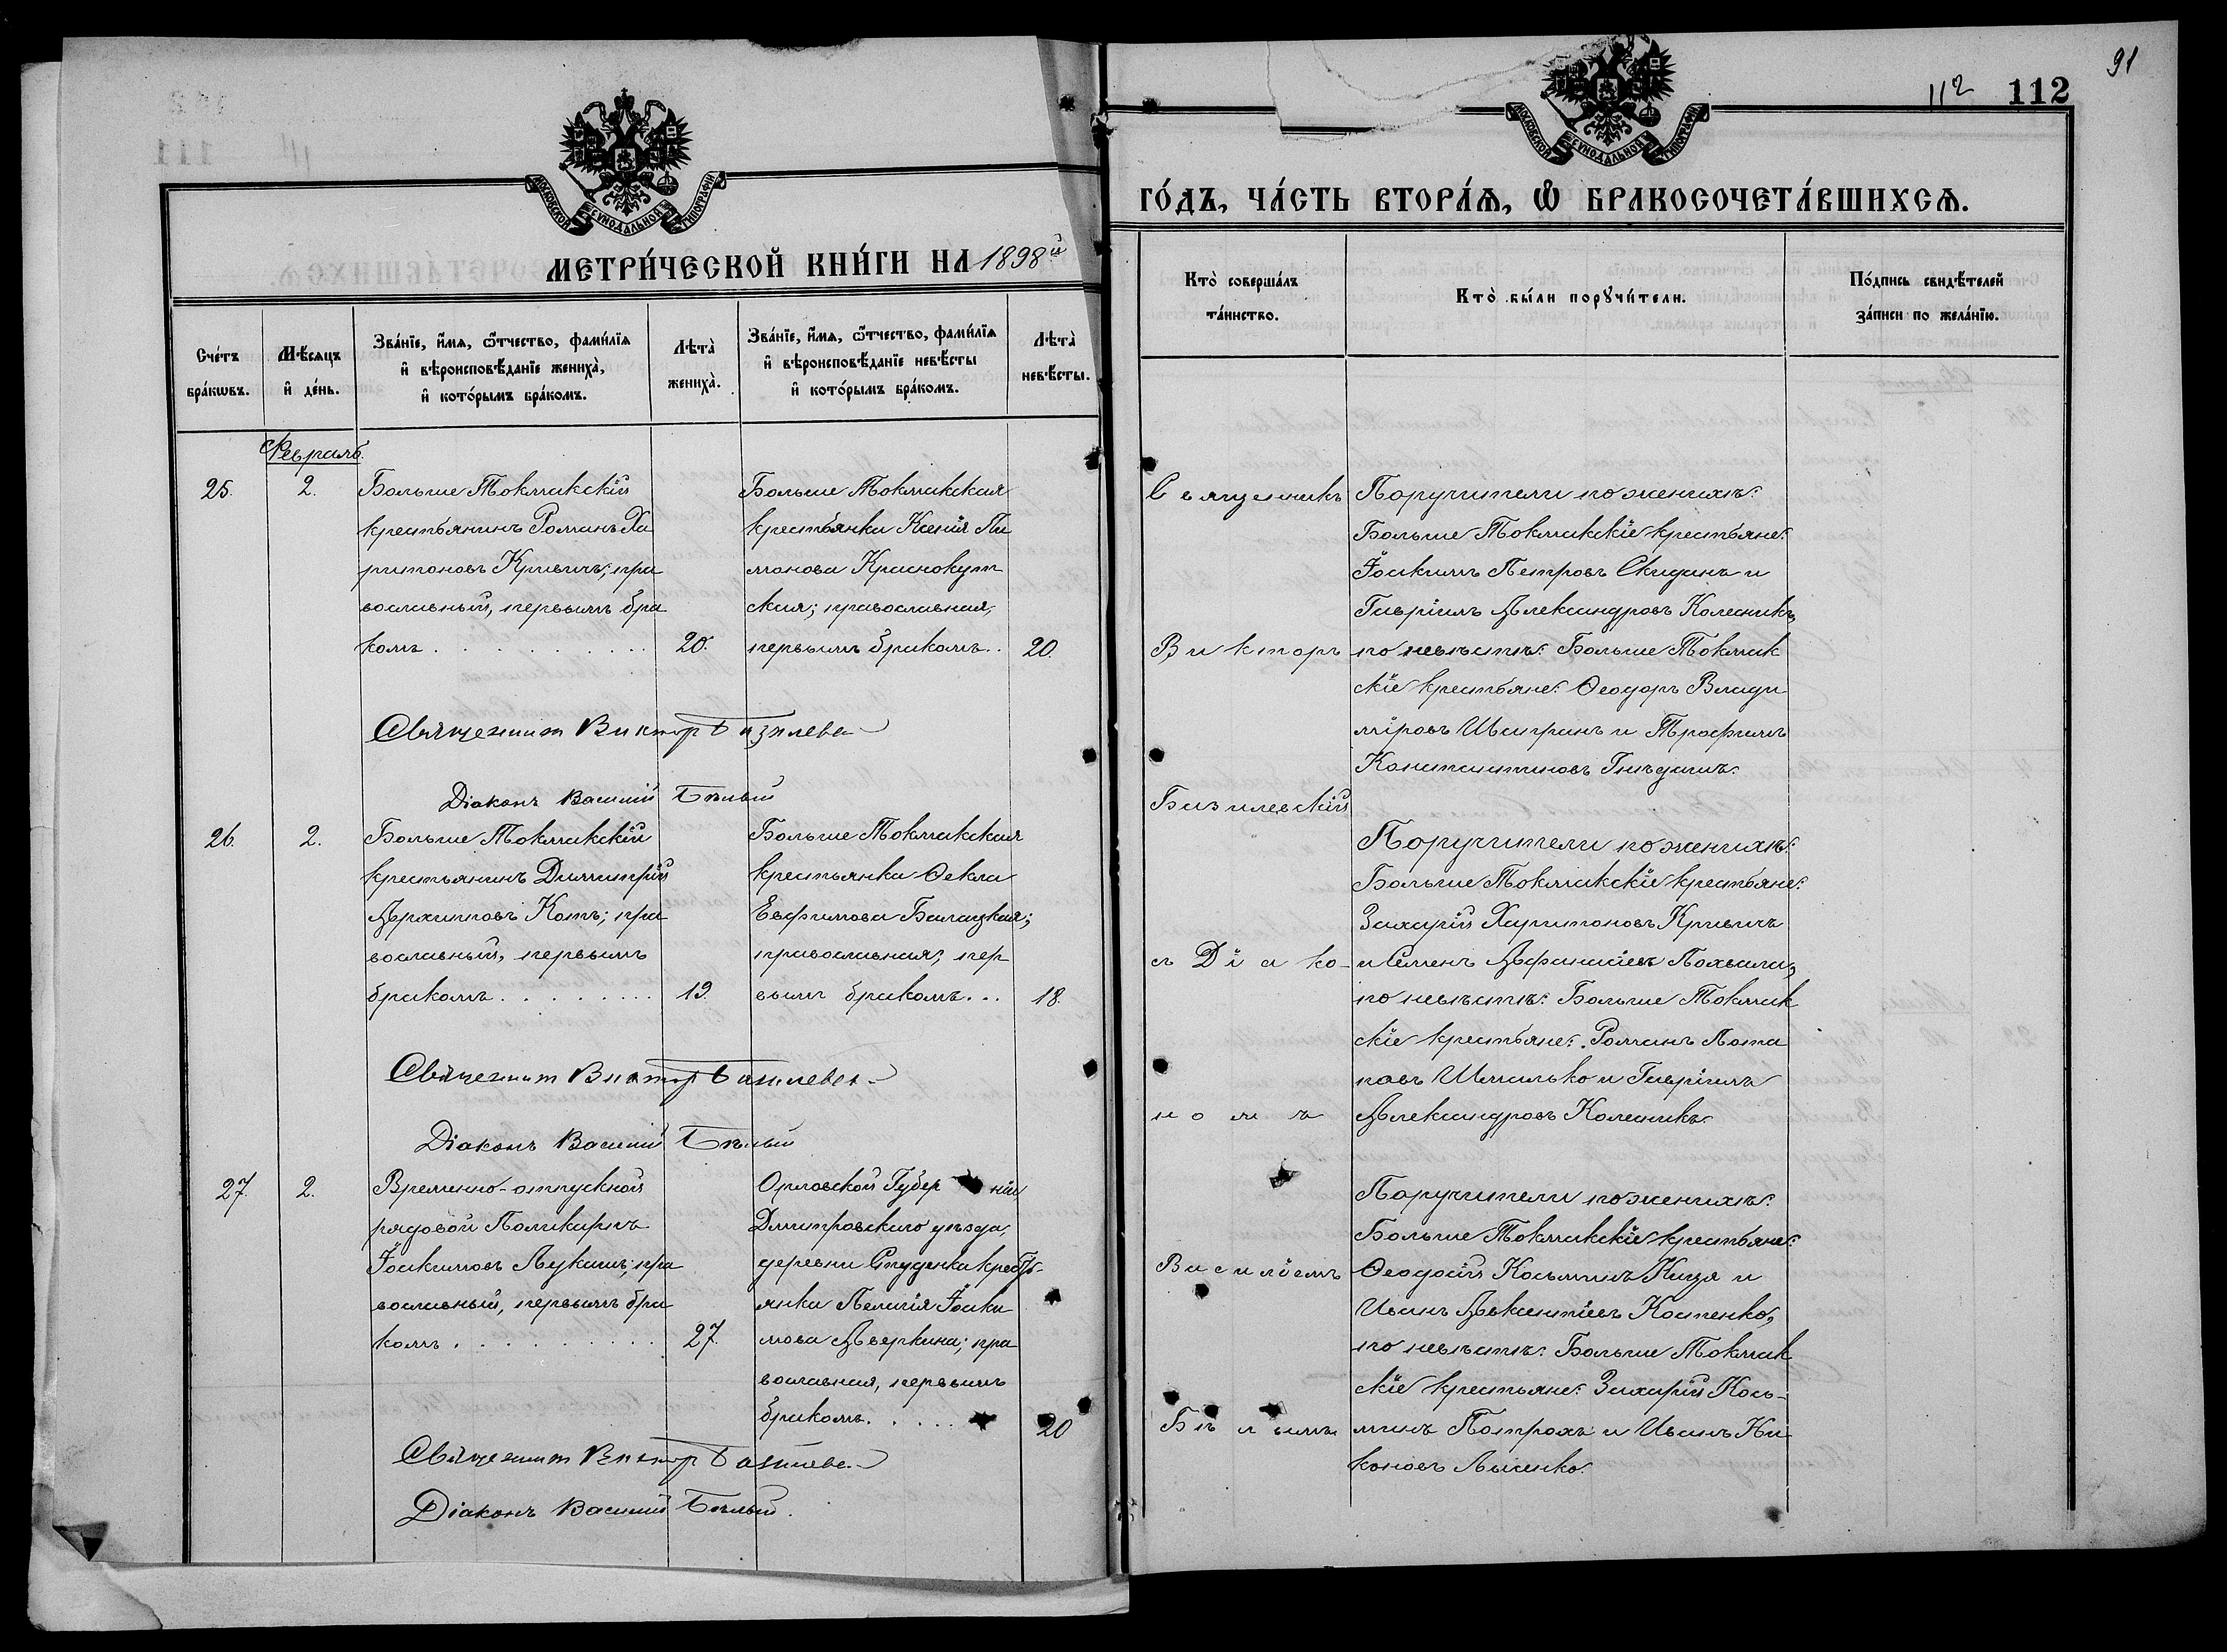 МОСКОВСКОЙ СѴНОДАЛЬНОЙ ТИПОГРАФІИ
МЕТРИ́ЧЕСКОЙ КНИ́ГИ НА 1898й
Сче́тъ бра́кωвъ.
Мѣ́сяцъ и҆ де́нь.
Зва́нїе, и҆́мѧ, ѿтчество, фами́лїѧ
и҆ вѣроисповѣ́данїе жениха̀,
и҆ кото́рымъ бра́комъ.
Лѣта̀ жениха̀.
Зва́нїе, и҆́мѧ, ѿтчество, фами́лїѧ
и҆ вѣроисповѣ́данїе невѣ́сты
и҆ кото́рымъ бра́комъ.
Лѣта̀ невѣ́сты.
Февраль.
25. 2.
Больше Токмакскій
крестьянинъ Романъ Ха
ритоновъ Кривичъ; пра
вославный, первымъ бра
комъ 20.
Больше Токмакская
крестьянка Ксенія Пи
монова Краснокут
ская; православная,
первымъ бракомъ.. 20.
Священник Виктор Базилевс
Діаконъ Василий Бѣлый
26. 2.
Больше Токмакскій
крестьянинъ Димитрій
Архиповъ Котъ; пра
вославный, первымъ
бракомъ 19.
Больше Токмакская
крестьянка Ѳекла
Евфимова Балацкая;
православная; пер
вымъ бракомъ... 18.
Священник Виктор Базилевс
Діаконъ Василий Бѣлый
27. 2.
Временно-отпускной
рядовой Поликарпъ
Іоакимовъ Лукаш; пра
вославный, первымъ бра
комъ 27.
Орловской Губерніи
Дмитровскаго уѣзда,
деревни Студенка кресть-
янка Пелагія Іоаки
мова Аверкина; пра
вославная, первымъ
бракомъ 20
Священник Виктор Базилевс
Діаконъ Василий Бѣлый.
91
112 112
МОСКОВСКОЙ СѴНОДАЛЬНОЙ ТИПОГРАФІИ
ГО́ДЪ, ЧА́СТЬ ВТОРА́Ѧ, Ѽ БРАКОСОЧЕТА́ВШИХСѦ.
Кто̀ соверша́лъ
та́инство.
Кто̀ бы́ли порꙋчи́тели.
По́дпись свидѣ́телей
за́писи по жела́нїю.
Священникъ
Викторъ
Базилевскій
съ Діако-
номъ
Василіемъ
Бѣлымъ
Поручители по женихѣ:
Больше Токмакскіе крестьяне:
Іоакимъ Петровъ Скиданъ и
Гавріилъ Александровъ Колесникъ,
по невѣстѣ: Больше Токмак
скіе крестьяне: Ѳеодоръ Влади
міровъ Шаигранъ и Трофимъ
Константиновъ Гнѣдашъ.
Поручители по женихѣ:
Больше Токмакскіе крестьяне:
Захарій Харитоновъ Кривичъ
и Семенъ Афанасіевъ Похвала,
по невѣстѣ: Больше Токмак
скіе крестьяне: Романъ Пота
повъ Шмалько и Гавріилъ
Александровъ Колесникъ.
Поручители по женихѣ:
Больше Токмакскіе крестьяне:
Ѳеодосій Косьминъ Кидя и
Иванъ Авксентіевъ Костенко,
по невѣстѣ: Больше Токмак
скіе крестьяне: Захарій Кось-
минъ Потрохъ и Иванъ Ни
коновъ Лысенко.